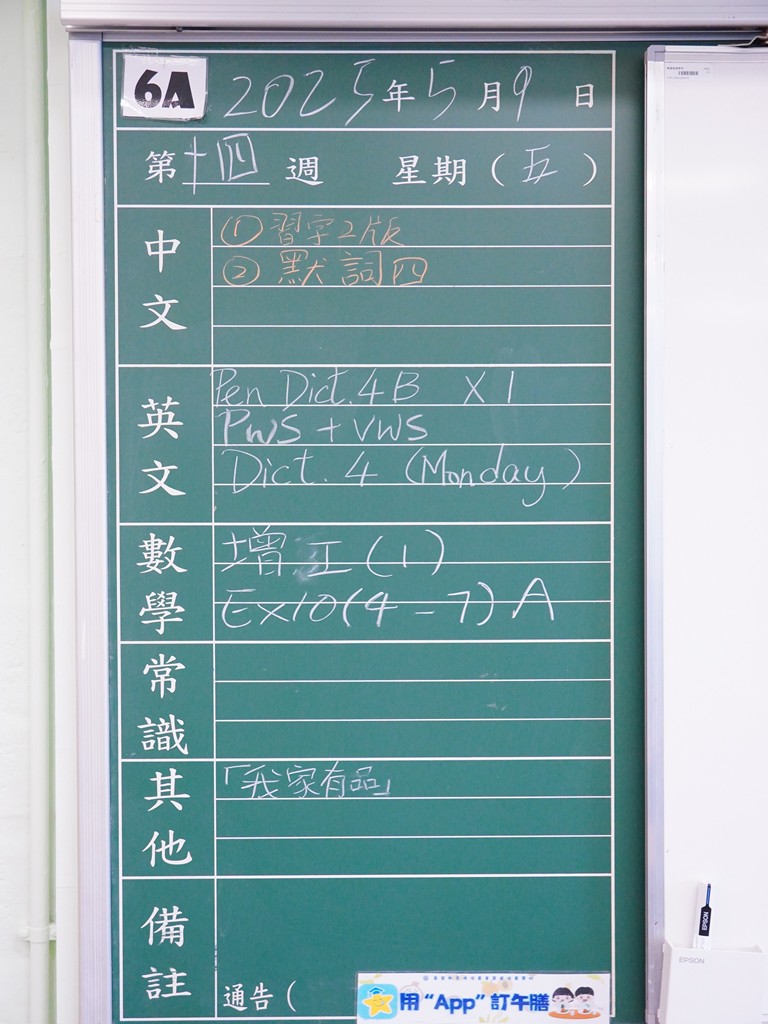 6A 2025年5月9日
第十四週 星期(五)
中文
①習字2版
②默詞四
英文
Pen Dict. 4B X 1
PWS + VWS
Dict. 4 (Monday)
數學
增工(1)
Ex10(4-7)A
常識
其他
「我家有品」
備註
通告(
用“App”訂午膳
EPSON
EPSON